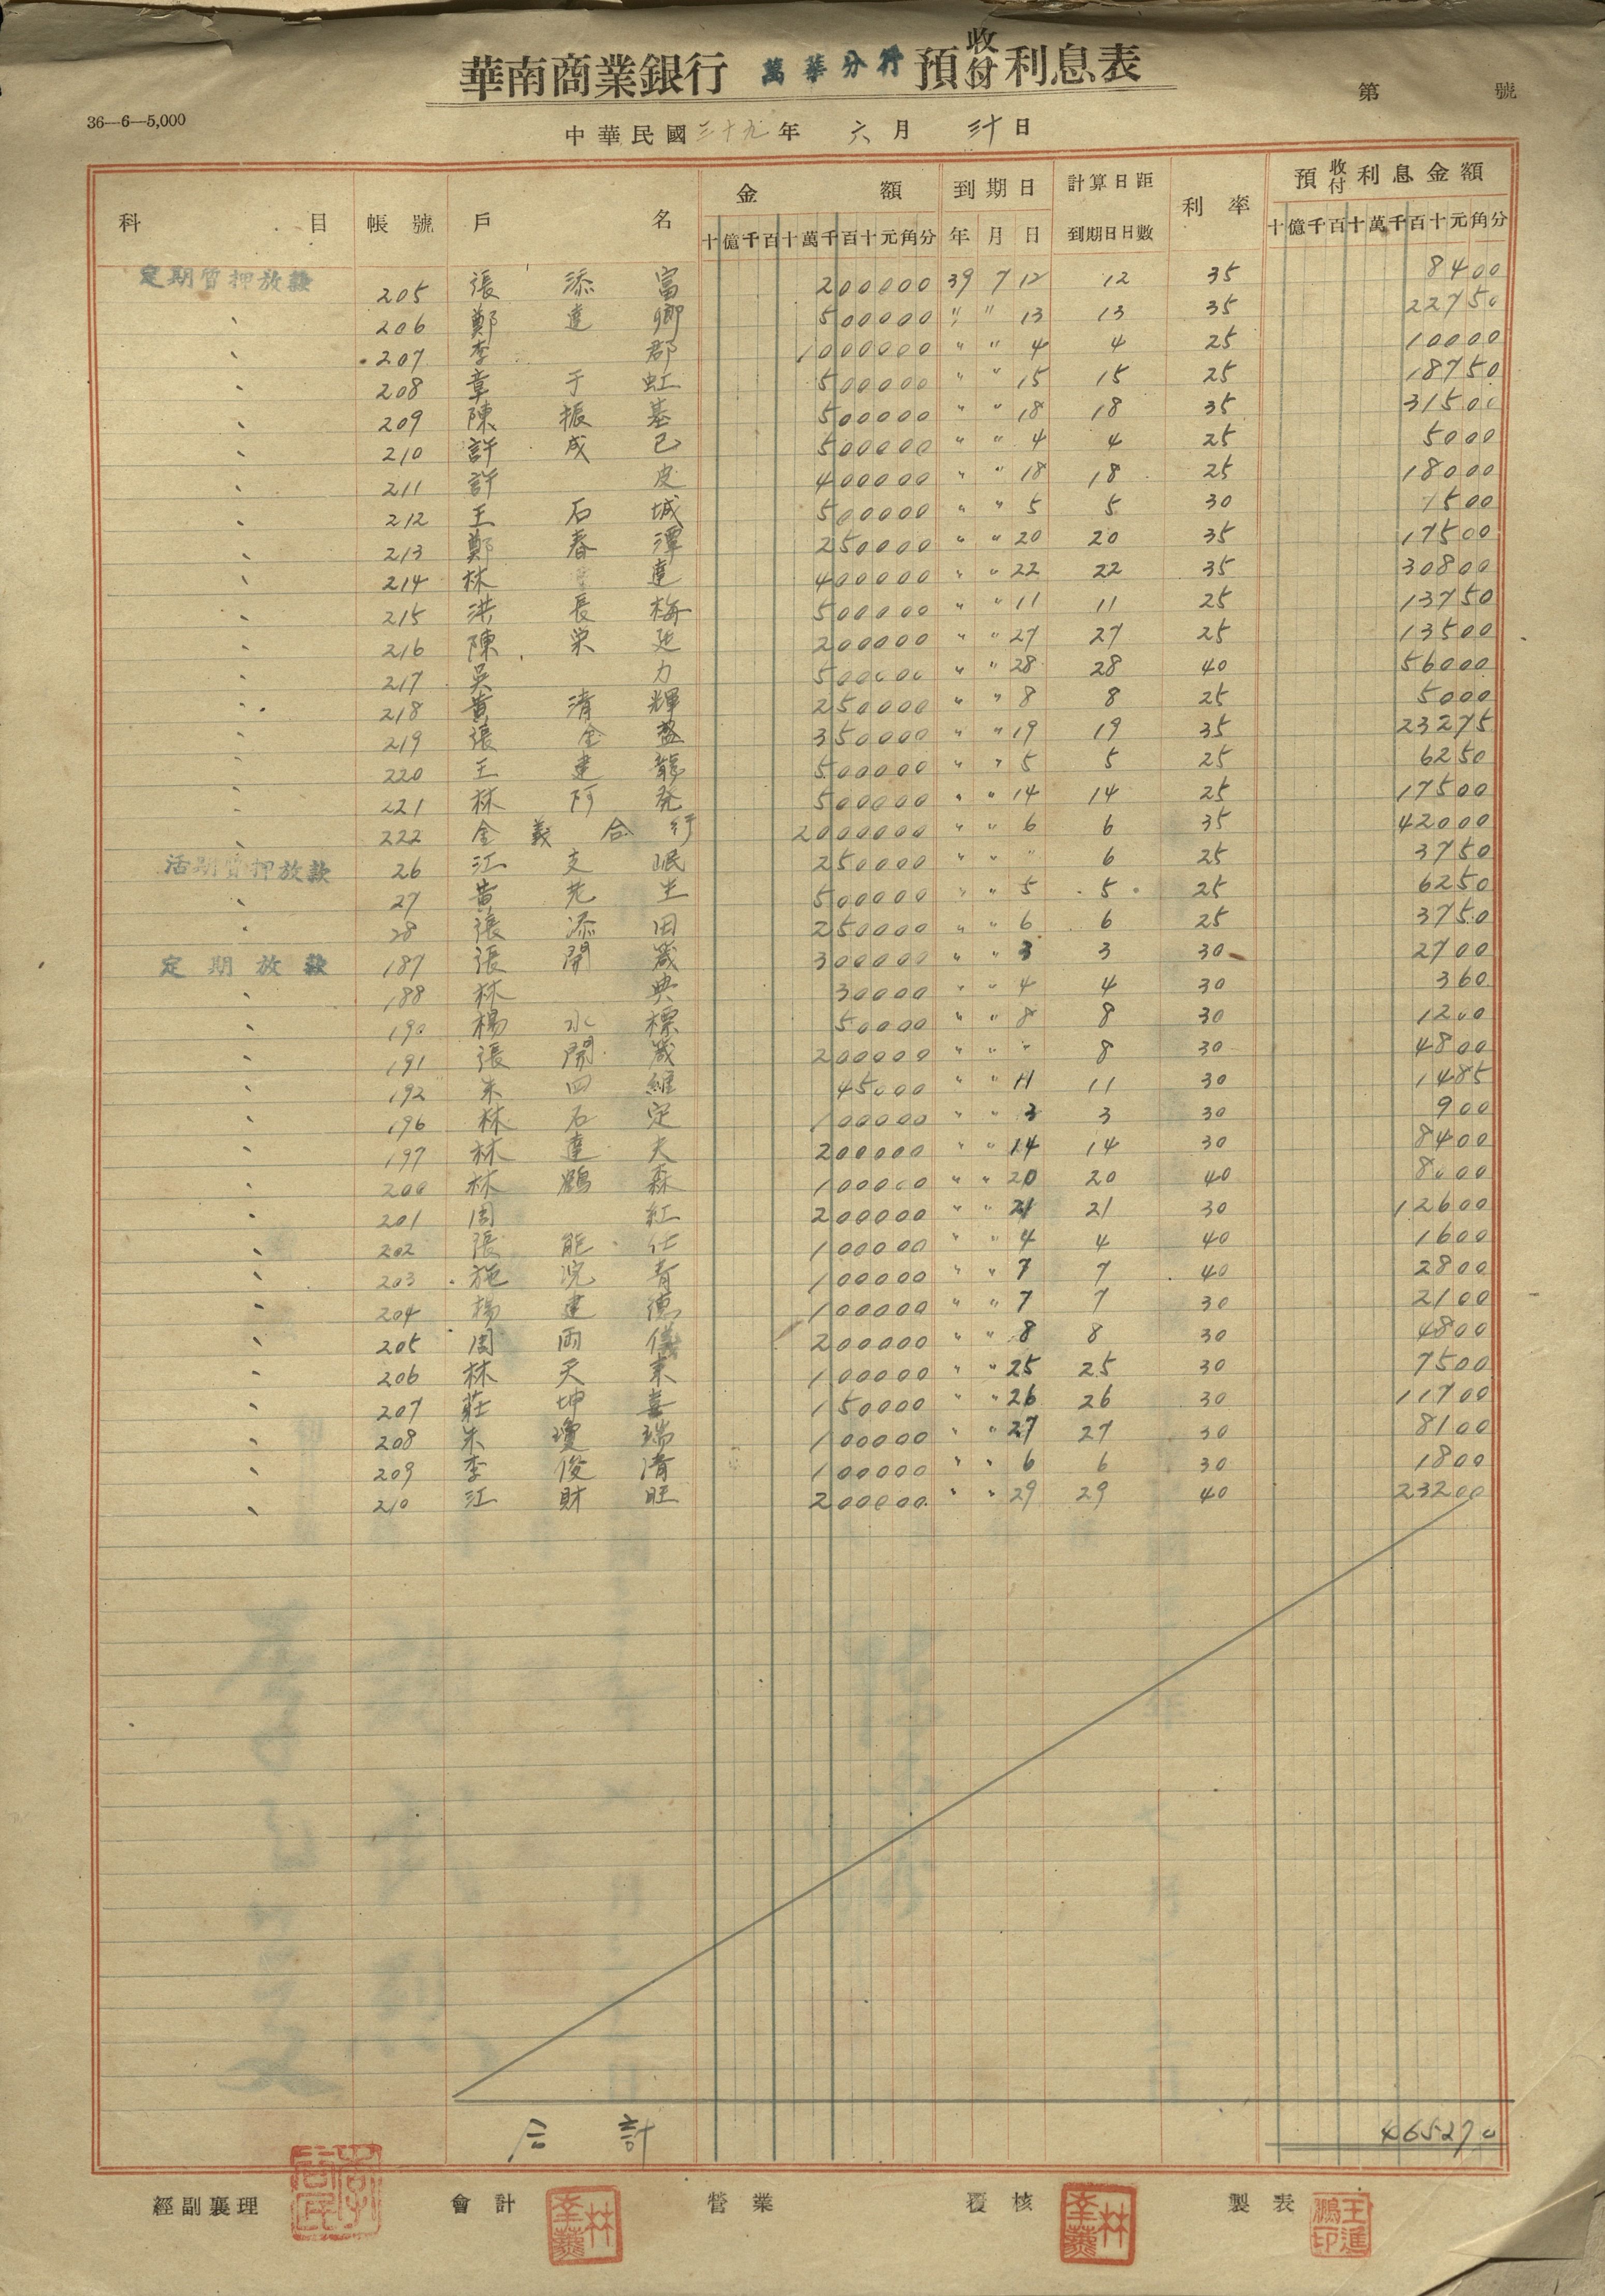 華南商業銀行 萬華分行 預收付利息表
第 號
36—6—5,000
中華民國三十九年 六月 三十日
科目 帳號 戶名 金額 到期日 計算日距到期日日數 利率 預收付利息金額
十億千百十萬千百十元角分 年 月 日 十億千百十萬千百十元角分
定期質押放款 205 張添富 200000 39 7 12 12 35 8400
、 206 鄭達卿 500000 〃 〃 13 13 35 22750
、 207 李郡 1000000 〃 〃 4 4 25 10000
、 208 章于虹 500000 〃 〃 15 15 25 18750
、 209 陳振基 500000 〃 〃 18 18 35 31500
、 210 許成己 500000 〃 〃 4 4 25 5000
、 211 許皮 400000 〃 〃 18 18 25 18000
、 212 王石城 500000 〃 〃 5 5 30 7500
、 213 鄭春潭 250000 〃 〃 20 20 35 17500
、 214 林達 400000 〃 〃 22 22 35 30800
、 215 洪長梅 500000 〃 〃 11 11 25 13750
、 216 陳栄 200000 〃 〃 27 27 25 13500
、 217 吳力 500000 〃 〃 28 28 40 56000
、 218 黃清輝 250000 〃 〃 8 8 25 5000
、 219 張金盛 350000 〃 〃 19 19 35 23275
、 220 王建龍 500000 〃 〃 5 5 25 6250
、 221 林阿発 500000 〃 〃 14 14 25 17500
、 222 金義合行 2000000 〃 〃 6 6 35 42000
活期質押放款 26 江支岷 250000 〃 〃 〃 6 25 3750
、 27 黃先生 500000 〃 〃 5 5 25 6250
、 28 張添田 250000 〃 〃 6 6 25 3750
定期放款 187 張開歲 300000 〃 〃 3 3 30 2700
、 188 林典 30000 〃 〃 4 4 30 360
、 190 楊水標 50000 〃 〃 8 8 30 1200
、 191 張開歲 200000 〃 〃 〃 8 30 4800
、 192 朱四維 45000 〃 〃 11 11 30 1485
、 196 林石定 100000 〃 〃 3 3 30 900
、 197 林達夫 200000 〃 〃 14 14 30 8400
、 200 林鶴森 100000 〃 〃 20 20 40 8000
、 201 周紅 200000 〃 〃 21 21 30 12600
、 202 張能仕 100000 〃 〃 4 4 40 1600
、 203 施浣青 100000 〃 〃 7 7 40 2800
、 204 楊建德 100000 〃 〃 7 7 30 2100
、 205 周雨儀 200000 〃 〃 8 8 30 4800
、 206 林天來 100000 〃 〃 25 25 30 7500
、 207 莊坤喜 150000 〃 〃 26 26 30 11700
、 208 朱瓊瑞 100000 〃 〃 27 27 30 8100
、 209 李俊清 100000 〃 〃 6 6 30 1800
、 210 江財旺 200000 〃 〃 29 29 40 23200
合計 465270
經副襄理 會計 營業 覆核 製表 王進鵬印